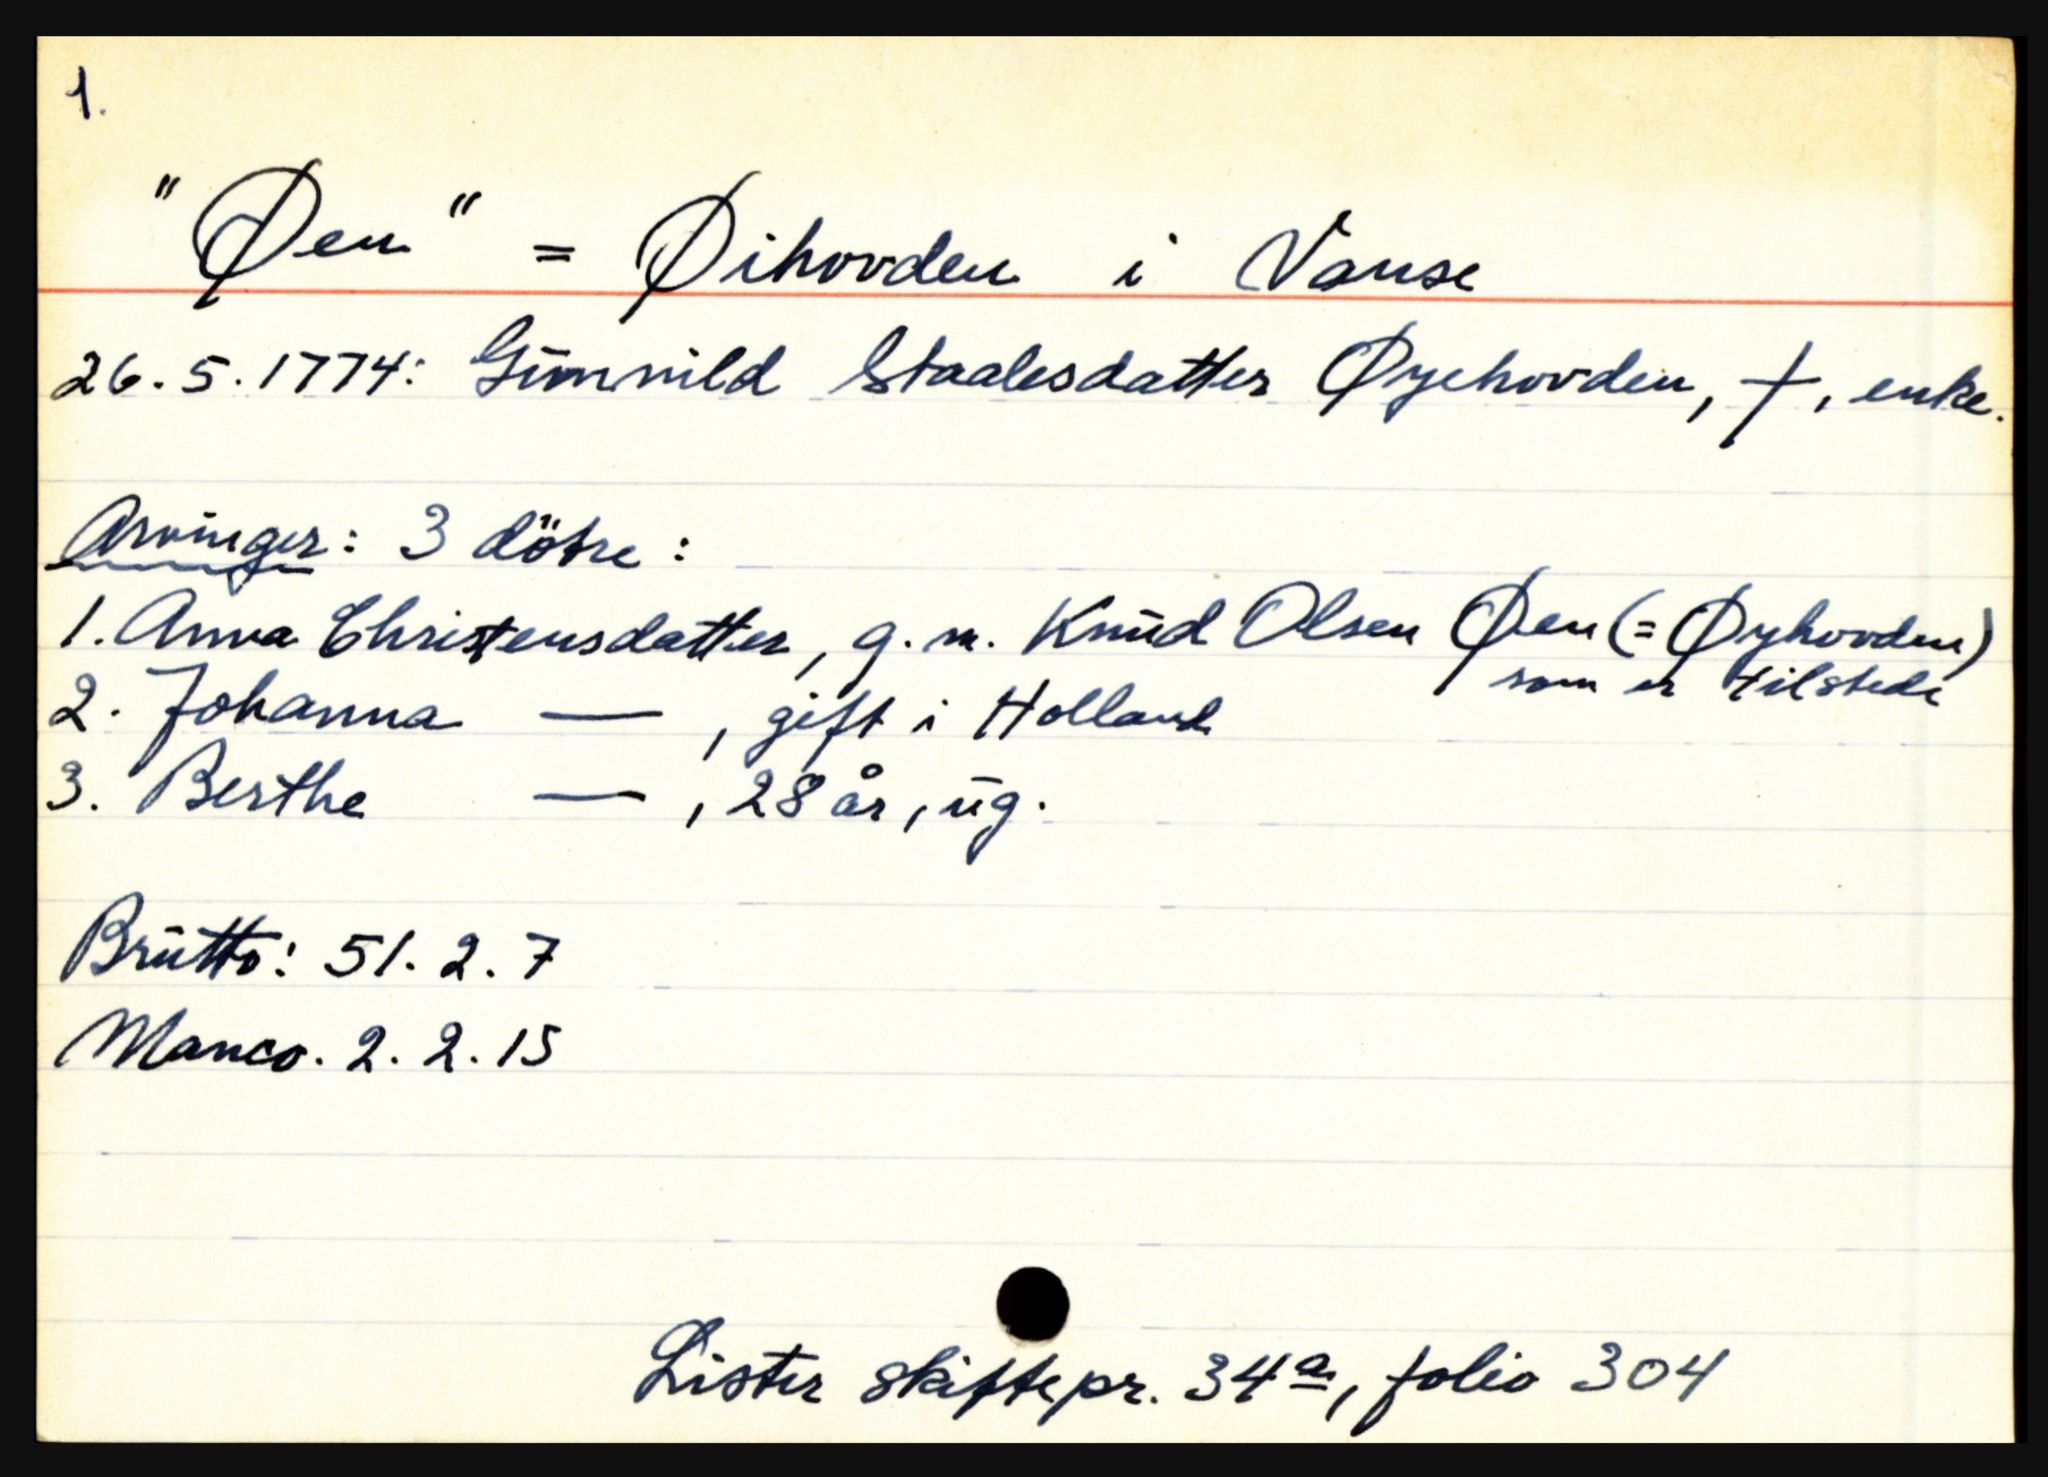 1.
"Øen" = Øihovden i Vanse
26.5.1774: Gunnild Staalesdatter Øyehovden, †, enke.
Arvinger: 3 döttre:
1. Anna Christensdatter, g.m. Knud Olsen Øen (= Øyhovden)
som er tilstede
2. Johanna — , gift i Holland
3. Berthe — , 28 år, ug.
Brutto: 51. 2. 7
Manco. 2. 2. 15
Lister skiftepr. 34a, folio 304